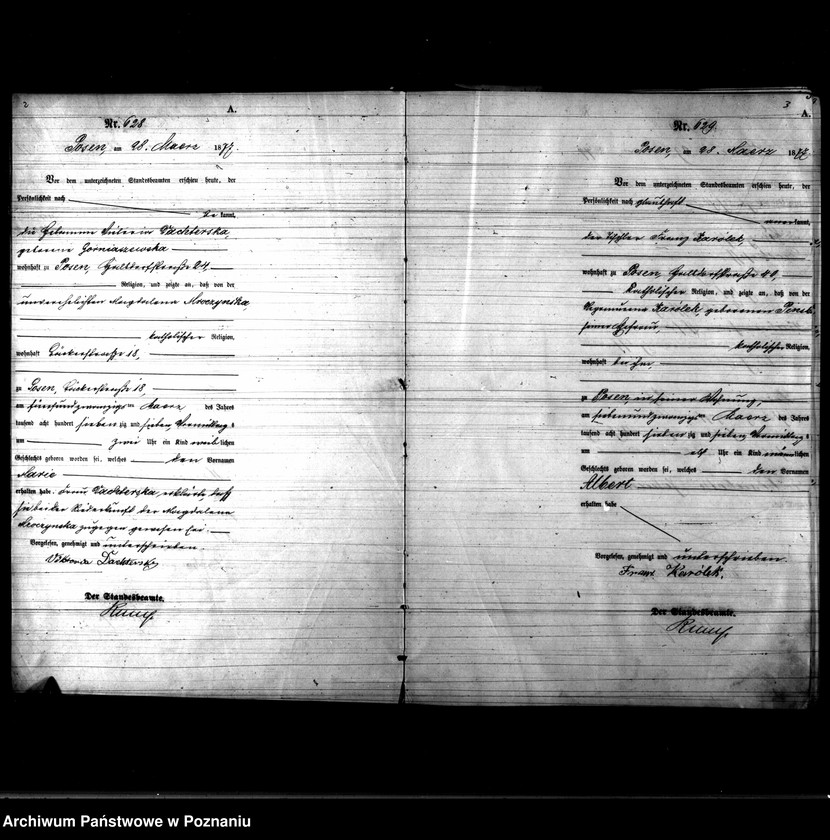 2
A.
Nr. 628
Posen, am 28. Maerz 1877.
Vor dem unterzeichneten Standesbeamten erschien heute, der
Persönlichkeit nach
be kannt,
die Hebamme Viktoria Dachterska,
geborene Gorniaszewska
wohnhaft zu Posen, Halldorfstraße 24
Religion, und zeigte an, daß von der
unverehelichten Magdalena Mroczynska,
katholischer Religion,
wohnhaft Bäckerstraße 18,
zu Posen, Bäckerstraße 18,
am fünfundzwanzigsten Maerz des Jahres
tausend acht hundert sieben zig und sieben Vormittags
um zwei Uhr ein Kind weib lichen
Geschlechts geboren worden sei, welches den Vornamen
Marie
erhalten habe. Frau Dachterska erklärte, daß
sie bei der Niederkunft der Magdalena
Mroczynska zugegen gewesen sei.
Vorgelesen, genehmigt und unterschrieben
Viktoria Dachterska
Der Standesbeamte.
3
A.
Nr. 629.
Posen, am 28. Maerz 1877.
Vor dem unterzeichneten Standesbeamten erschien heute, der
Persönlichkeit nach glaubhaft
kannt,
der Franz Karólek,
wohnhaft zu Posen, Halldorfstraße 40,
katholischer Religion, und zeigte an, daß von der
Karólek geborenen
seiner Ehefrau,
katholischer Religion,
wohnhaft bei ihm,
zu Posen in seiner Wohnung,
am siebenundzwanzigsten Maerz des Jahres
tausend acht hundert sieben zig und sieben Vormittags
um elf Uhr ein Kind männ lichen
Geschlechts geboren worden sei, welches den Vornamen
Albert
erhalten habe
Vorgelesen, genehmigt und unterschrieben.
Franz Karólek.
Der Standesbeamte.
Archiwum Państwowe w Poznaniu